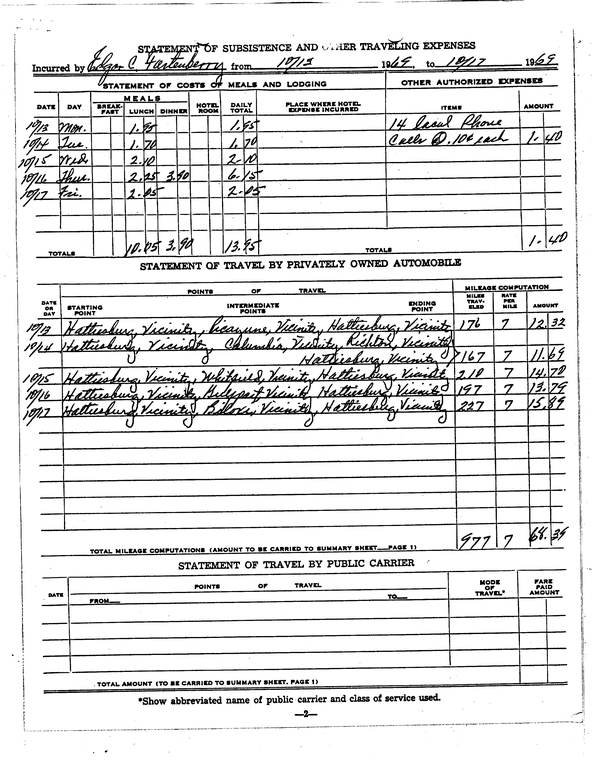 STATEMENT OF SUBSISTENCE AND OTHER TRAVELING EXPENSES
Incurred by Edgar C. Fortenberry from 10/13 1969 to 10/17 1969
STATEMENT OF COSTS OF MEALS AND LODGING OTHER AUTHORIZED EXPENSES
DATE DAY MEALS BREAK-FAST LUNCH DINNER HOTEL ROOM DAILY TOTAL PLACE WHERE HOTEL EXPENSE INCURRED ITEMS AMOUNT
10/13 Mon. 1.95 1.95 14 local Phone
10/14 Tue. 1.70 1.70 Calls @ .10¢ each 1.40
10/15 Wed. 2.10 2.10
10/16 Thur. 2.25 3.90 6.15
10/17 Fri. 2.05 2.05
TOTALS 10.05 3.90 13.95 TOTALS 1.40
STATEMENT OF TRAVEL BY PRIVATELY OWNED AUTOMOBILE
DATE OR DAY POINTS OF TRAVEL MILEAGE COMPUTATION
STARTING POINT INTERMEDIATE POINTS ENDING POINT MILES TRAV-ELED RATE PER MILE AMOUNT
10/13 Hattiesburg Vicinity, Picayune, Vicinity, Hattiesburg, Vicinity 176 7 12.32
10/14 Hattiesburg, Vicinity Columbia, Vicinity, Richton, Vicinity
Hattiesburg, Vicinity 167 7 11.69
10/15 Hattiesburg, Vicinity, Whitfield, Vicinity, Hattiesburg, Vicinity 210 7 14.70
10/16 Hattiesburg, Vicinity, Gulfport Vicinity, Hattiesburg, Vicinity 197 7 13.79
10/17 Hattiesburg, Vicinity, Biloxi, Vicinity, Hattiesburg, Vicinity 227 7 15.89
TOTAL MILEAGE COMPUTATIONS (AMOUNT TO BE CARRIED TO SUMMARY SHEET—PAGE 1) 977 7 68.39
STATEMENT OF TRAVEL BY PUBLIC CARRIER
DATE POINTS OF TRAVEL MODE OF TRAVEL* FARE PAID AMOUNT
FROM— TO—
TOTAL AMOUNT (TO BE CARRIED TO SUMMARY SHEET, PAGE 1)
*Show abbreviated name of public carrier and class of service used.
—2—